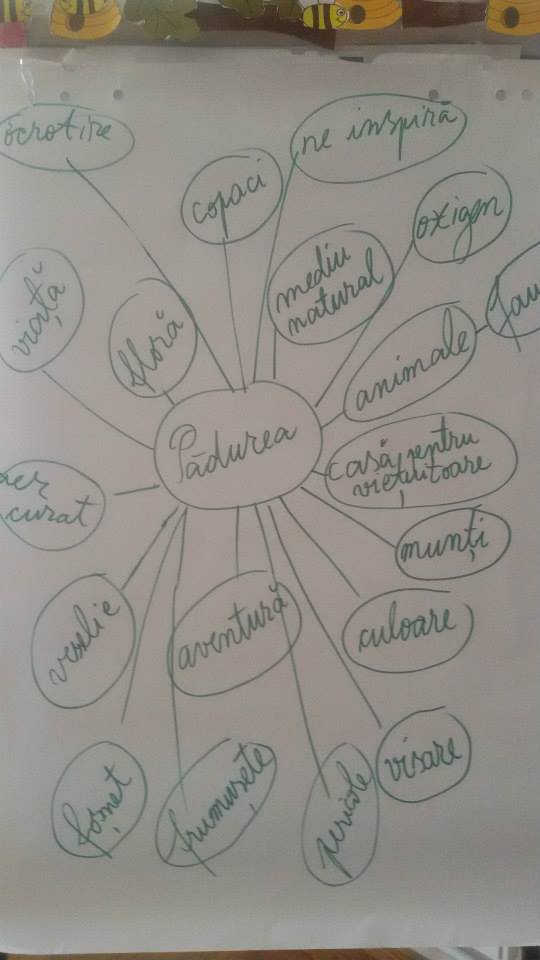 ocrotire
ne inspiră
copaci
oxigen
mediu
natural
viață
floră
animale
fau
Pădurea
casă pentru
viețuitoare
aer
curat
munți
veselie
aventură
culoare
foșnet
frumusețe
pericole
visare